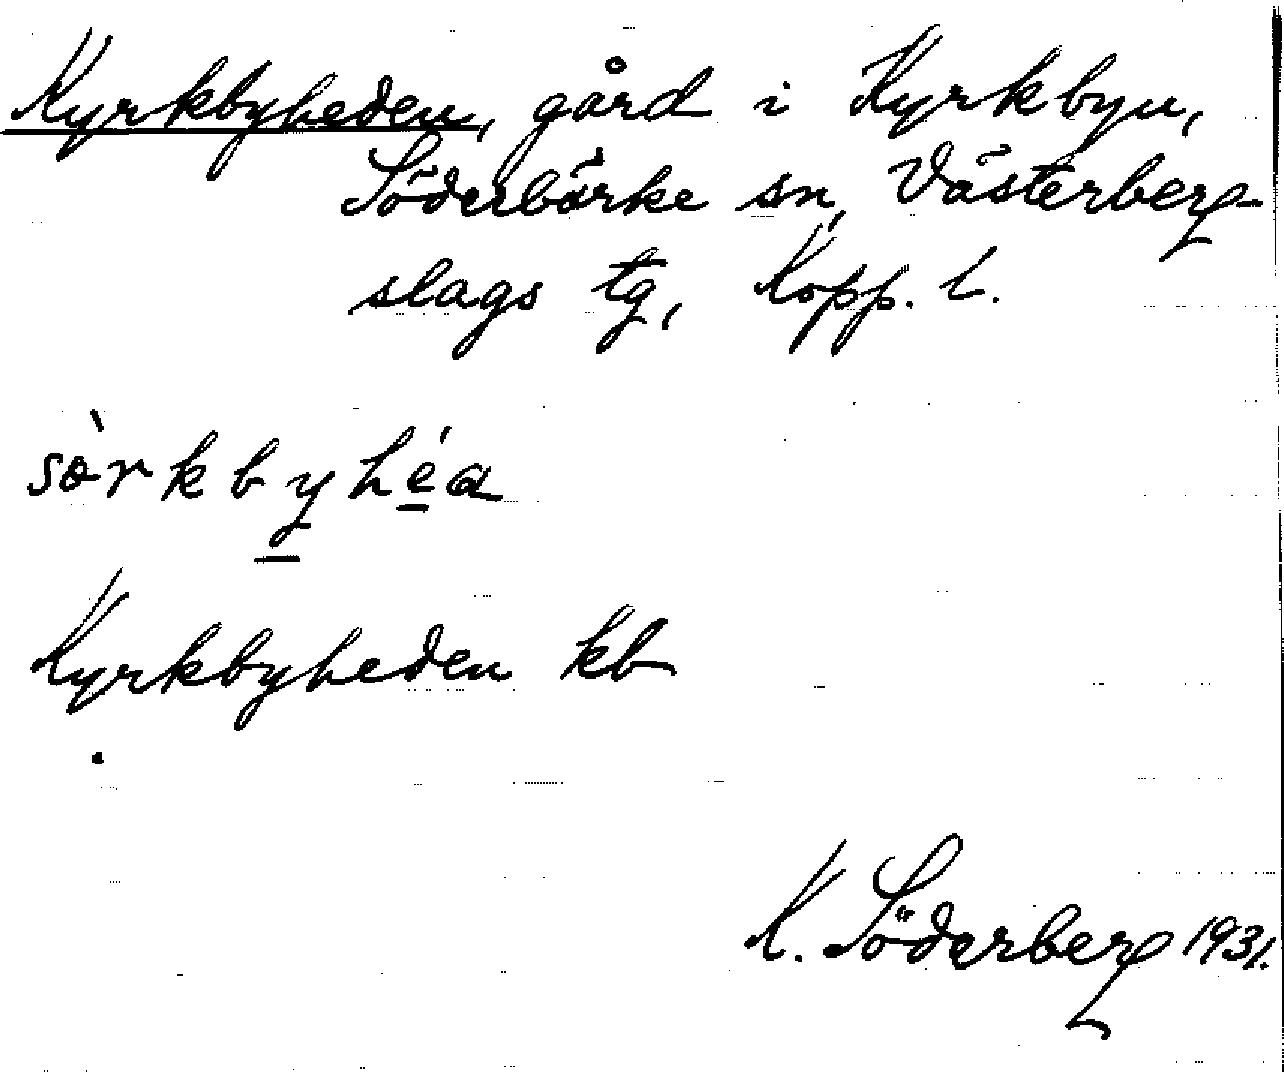 Kyrkbyheden, gård i Kyrkbyn,
Söderbärke sn, Västerberg-
slags tg, Kopp. l.
sө̀rkbyhéa
Kyrkbyheden kb
K. Söderberg 1931.